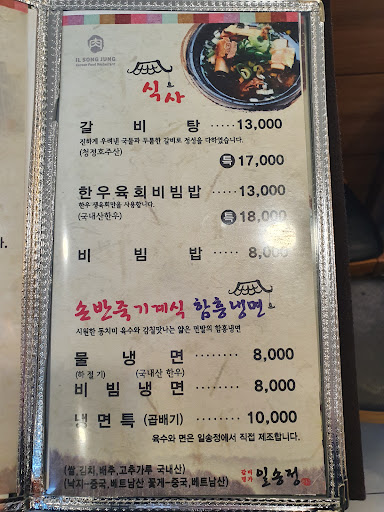 IL SONG JUNG
식사
갈비탕 ········ 13,000
진하게 우려낸 국물과 푸짐한 갈비로 정성을 다하였습니다.
(청정호주산) 특 17,000
한우육회비빔밥 ······ 13,000
한우 생육회만을 사용합니다.
(국내산한우) 특 18,000
비빔밥 ········ 8,000
손반죽기계식 함흥냉면
시원한 동치미 육수와 감칠맛나는 얇은 면발의 함흥냉면
물냉면 ········ 8,000
(하절기) (국내산 한우)
비빔냉면 ········ 8,000
냉면특 (곱배기) ········ 10,000
육수와 면은 일송정에서 직접 제조합니다.
(쌀,김치,배추,고추가루 국내산)
(낙지-중국,베트남산 꽃게-중국,베트남산)
갈비명가 일송정